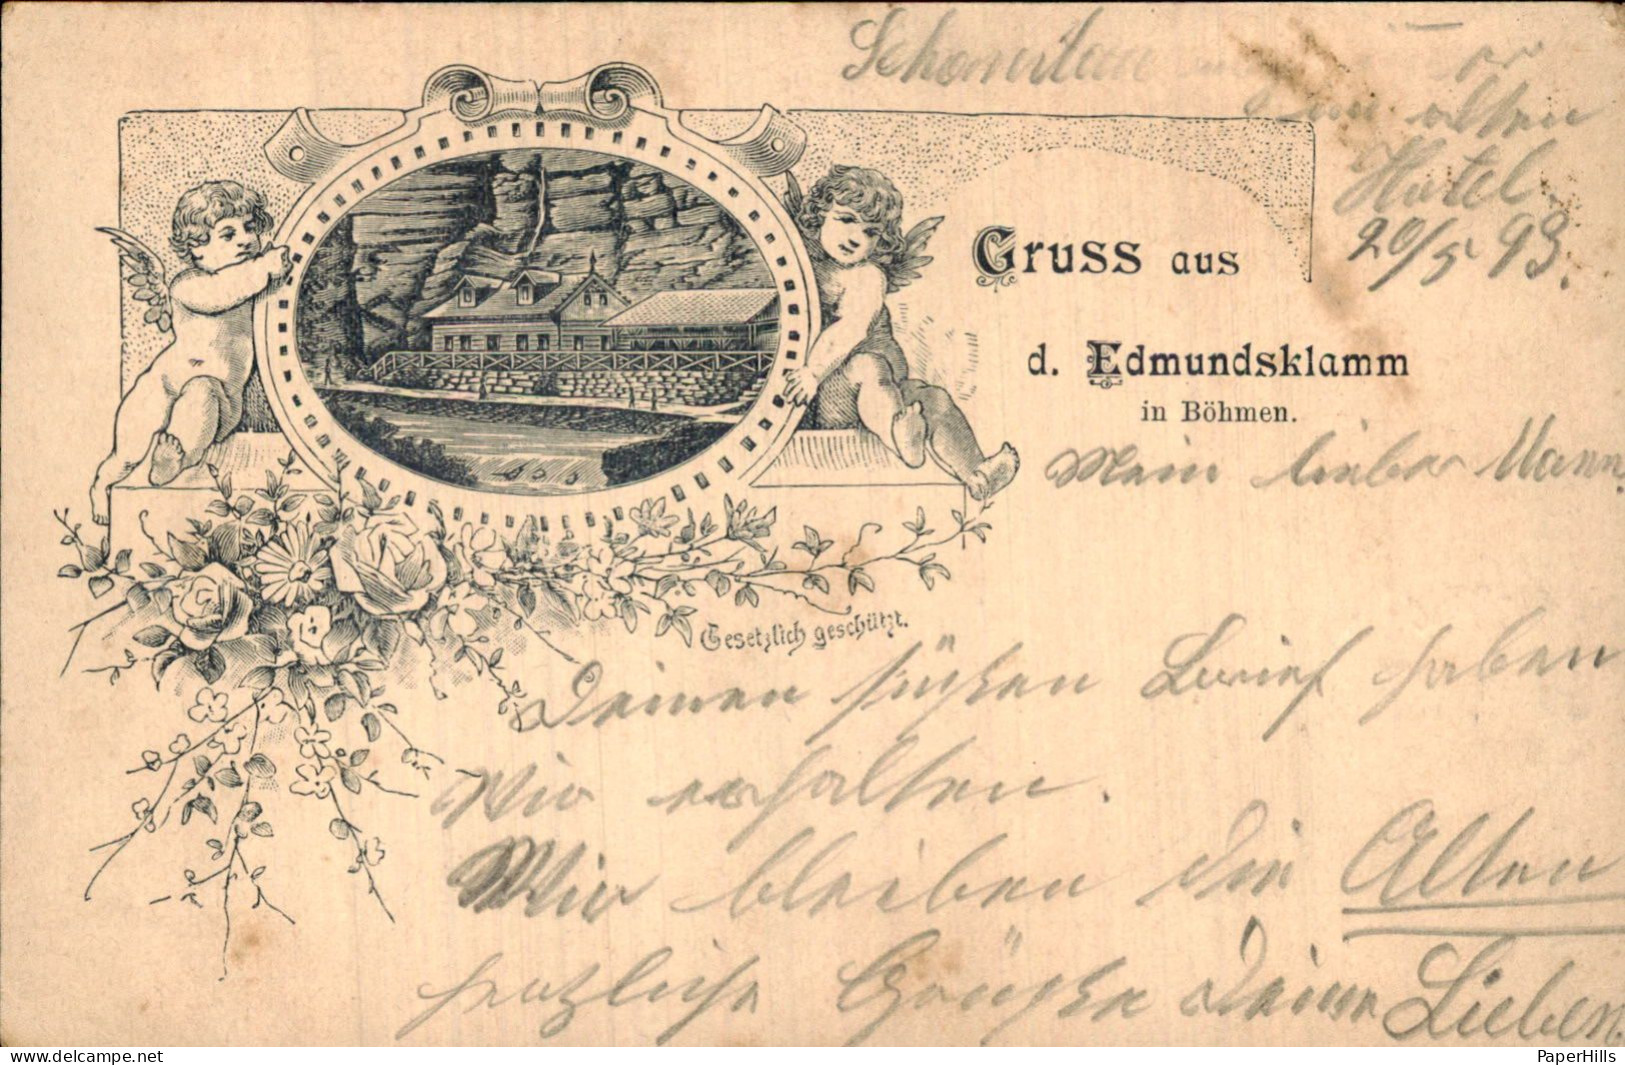 alten
Hotel
20/5 93.
Gruss aus
d. Edmundsklamm
in Böhmen.
Mein lieber Mann.
Gesetzlich geschützt.
Deinen süßen Brief haben
Wir erhalten.
Wir bleiben die Alten
herzliche Grüße Deine Lieben.
PaperHills